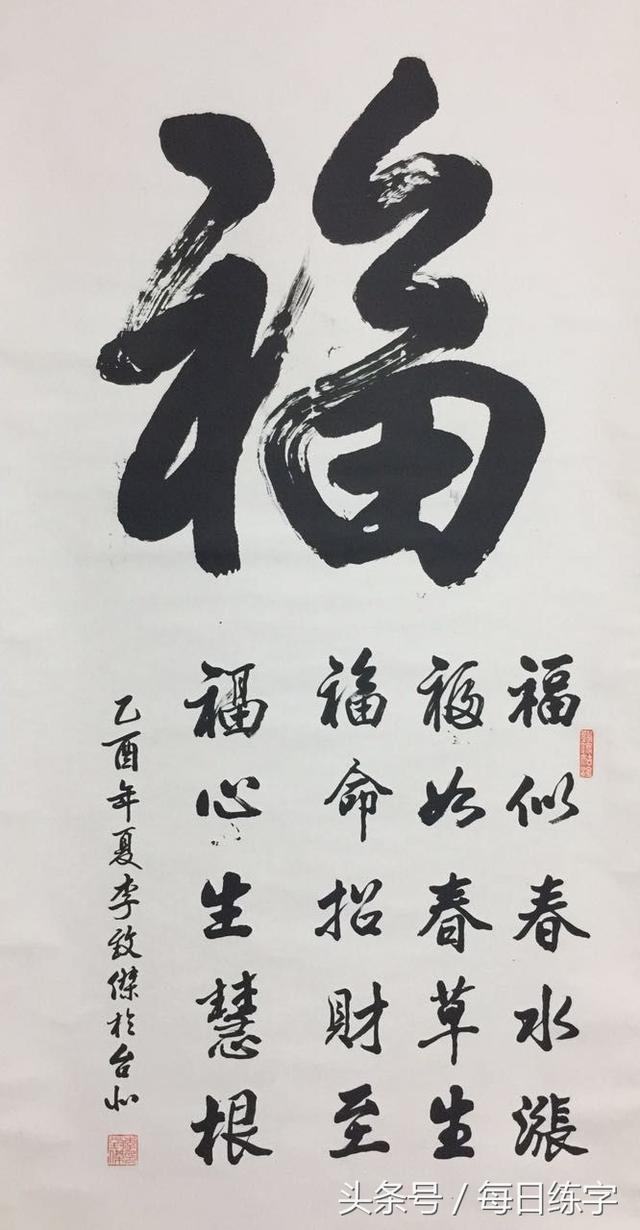 福
福似春水漲
福如春草生
福命招財至
福心生慧根
乙酉年夏李致傑於台北
头条号 / 每日练字